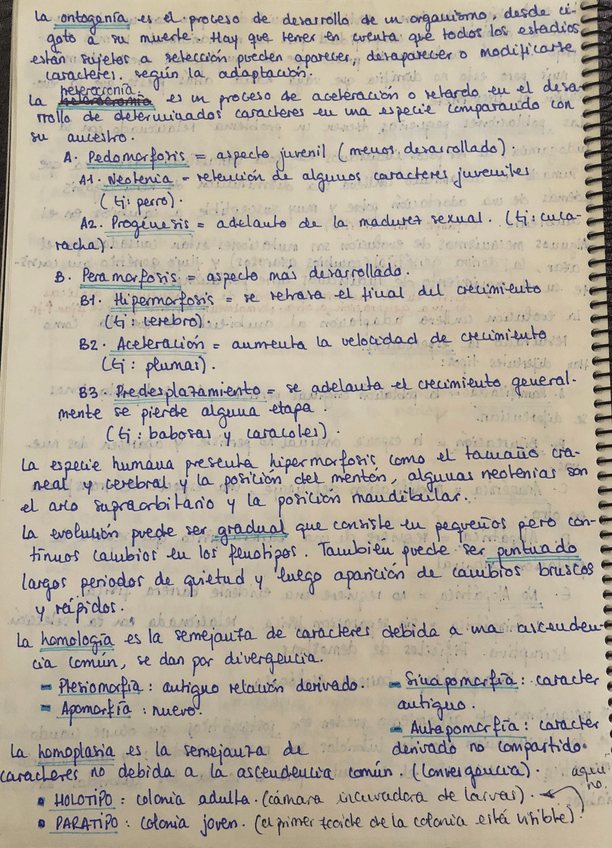 La ontogenia es el proceso de desarrollo de un organismo, desde ci-
goto a su muerte. Hay que tener en cuenta que todos los estadios
están sujetos a selección pueden aparecer, desaparecer o modificarse
caracteres. según la adaptación.
heterocronia
La es un proceso de aceleración o retardo en el desa-
rrollo de determinados caracteres en una especie comparando con
su ancestro.
A. Pedomorfosis = aspecto juvenil (menos desarrollado).
A1. Neotenia - retención de algunos caracteres juveniles
(Ej: perro).
A2. Progénesis = adelanto de la madurez sexual. (Ej: cuca-
racha).
B. Peramorfosis = aspecto más desarrollado.
B1. Hipermorfosis = se retrasa el final del crecimiento
(Ej: cerebro).
B2. Aceleración = aumenta la velocidad de crecimiento
(Ej: plumas).
B3. Predesplazamiento = se adelanta el crecimiento general-
mente se pierde alguna etapa.
(Ej: babosas y caracoles).
La especie humana presenta hipermorfosis como el tamaño cra-
neal y cerebral y la posición del mentón, algunas neotenias son
el arco supraorbitario y la posición mandibular.
La evolución puede ser gradual que consiste en pequeños pero con-
tinuos cambios en los fenotipos. También puede ser puntuado
largos periodos de quietud y luego aparición de cambios bruscos
y rápidos.
La homología es la semejanza de caracteres debida a una ascenden-
cia común, se dan por divergencia.
- Plesiomorfía: antiguo relación derivado.
- Apomorfía: nuevo.
- Sinapomorfía: caracter
antiguo.
- Autapomorfía: caracter
derivado no compartido.
La homoplasia es la semejanza de
caracteres no debida a la ascendencia común. (Convergencia).
aquí
no.
• HOLOTIPO: colonia adulta. (cámara incuvadora de larvas).
• PARATIPO: colonia joven. (el primer zoide de la colonia está visible).